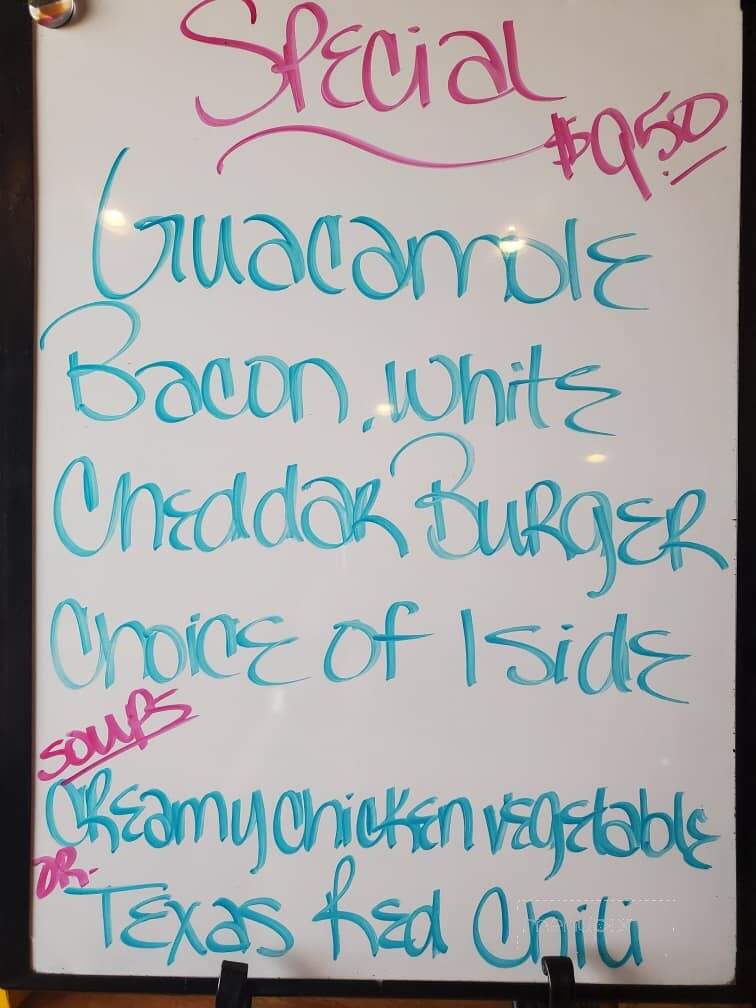 Special
$9.50
Guacamole
Bacon, White
Cheddar Burger
Choice of 1 side
Soups
Creamy Chicken Vegetable
or.
Texas Red Chili